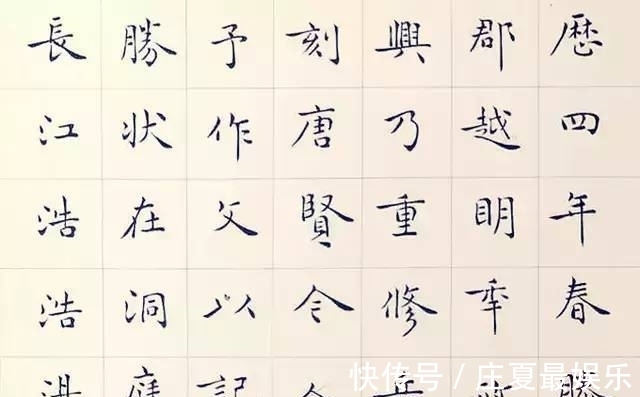 曆四年春滕
郡越明年
興乃重修岳
刻唐賢今人
予作文以記
勝状在洞庭
長江浩浩湯
快传号 / 庄夏最娱乐